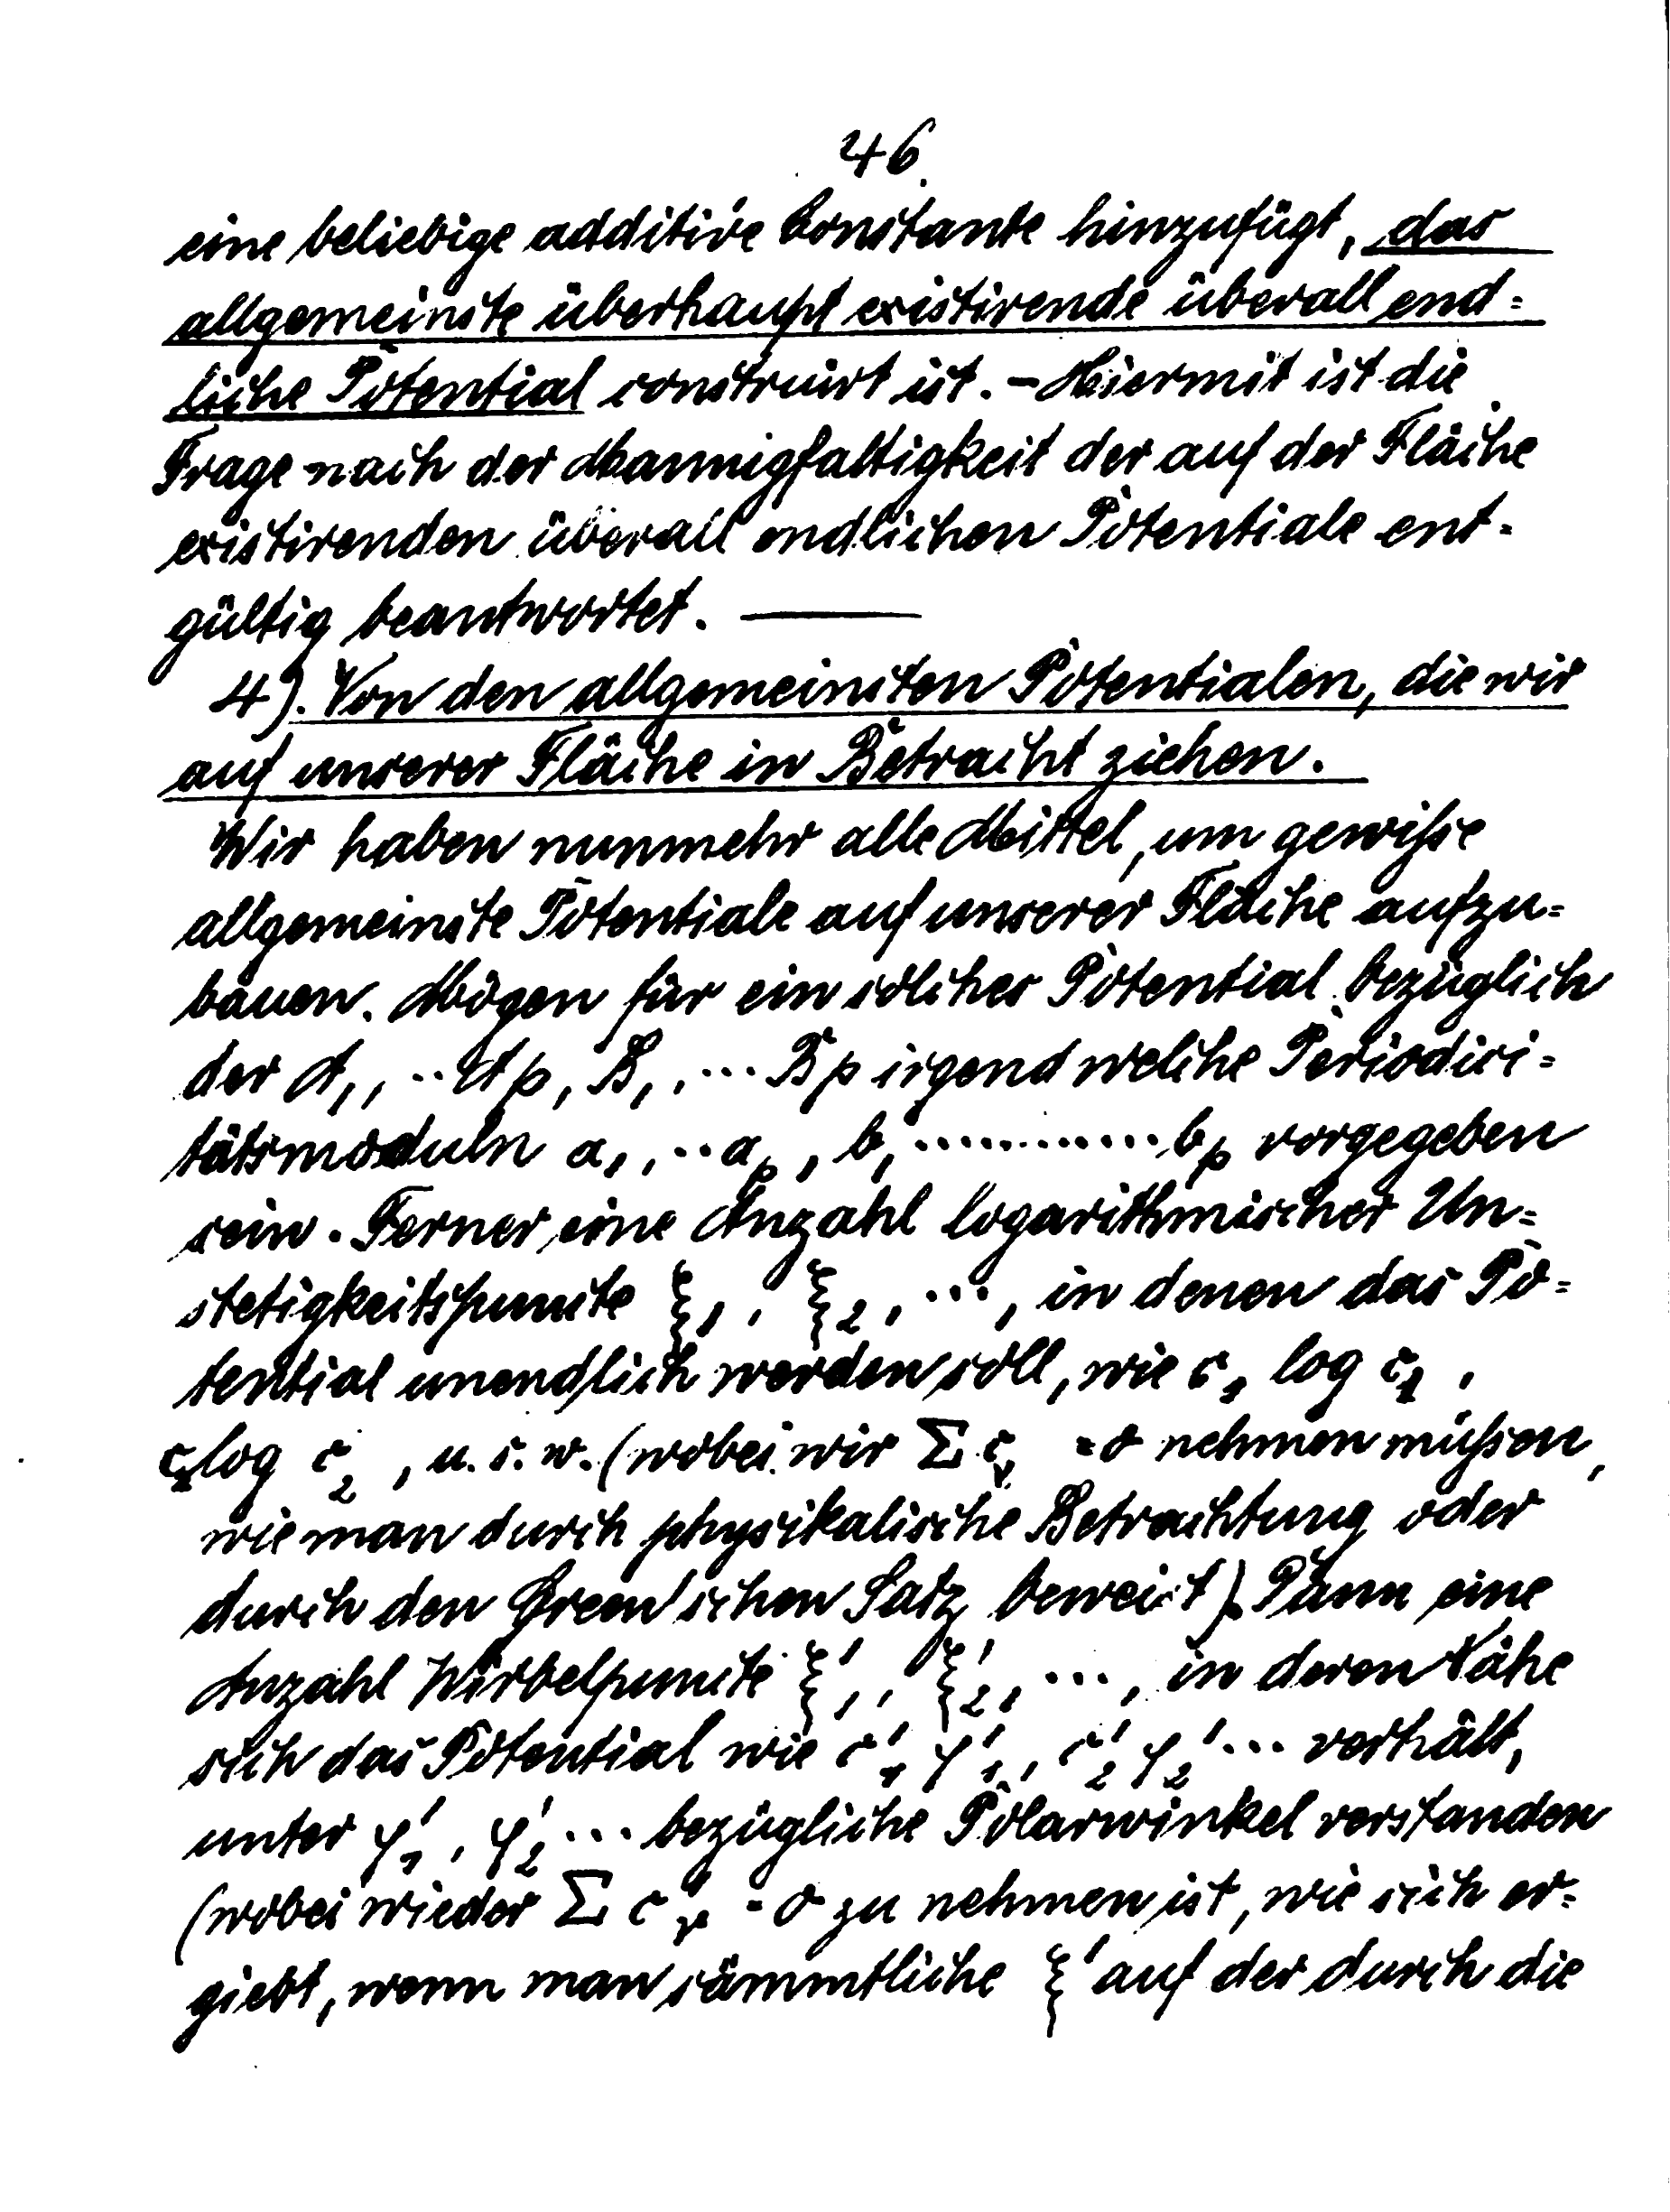 46.
eine beliebige additive Constante hinzufügt, das
allgemeinste überhaupt existirende überall end=
liche Potential construirt ist. – Hiermit ist die
Frage nach der Mannigfaltigkeit der auf der Fläche
existirenden überall endlichen Potentiale ent=
gültig beantwortet. —
4). Von den allgemeinsten Potentialen, die wir
auf unserer Fläche in Betracht ziehen.
Wir haben nunmehr alle Mittel, um gewisse
allgemeinste Potentiale auf unserer Fläche aufzu=
bauen. Mögen für ein solches Potential bezüglich
der A₁, ·· A_p, B₁, ··· B_p irgend welche Periodici=
tätsmoduln a₁, ·· a_p, b₁ ············ b_p vorgegeben
sein. Ferner eine Anzahl logarithmischer Un=
stetigkeitspunkte ξ₁, ξ₂, ···, in denen das Po=
tential unendlich werden soll, wie c₁ log r₁,
c₂ log r₂, u. s. w. (wobei wir Σ c_ν = 0 nehmen müssen,
wie man durch physikalische Betrachtung oder
durch den Green'schen Satz beweist). Dann eine
Anzahl Wirbelpunkte ξ'₁, ξ'₂, ···, in deren Nähe
sich das Potential wie c'₁ φ'₁, c'₂ φ'₂ ··· verhält,
unter φ'₁, φ'₂ ··· bezügliche Polarwinkel verstanden
(wobei wieder Σ c'_ν = 0 zu nehmen ist, wie sich er=
giebt, wenn man sämmtliche ξ' auf der durch die